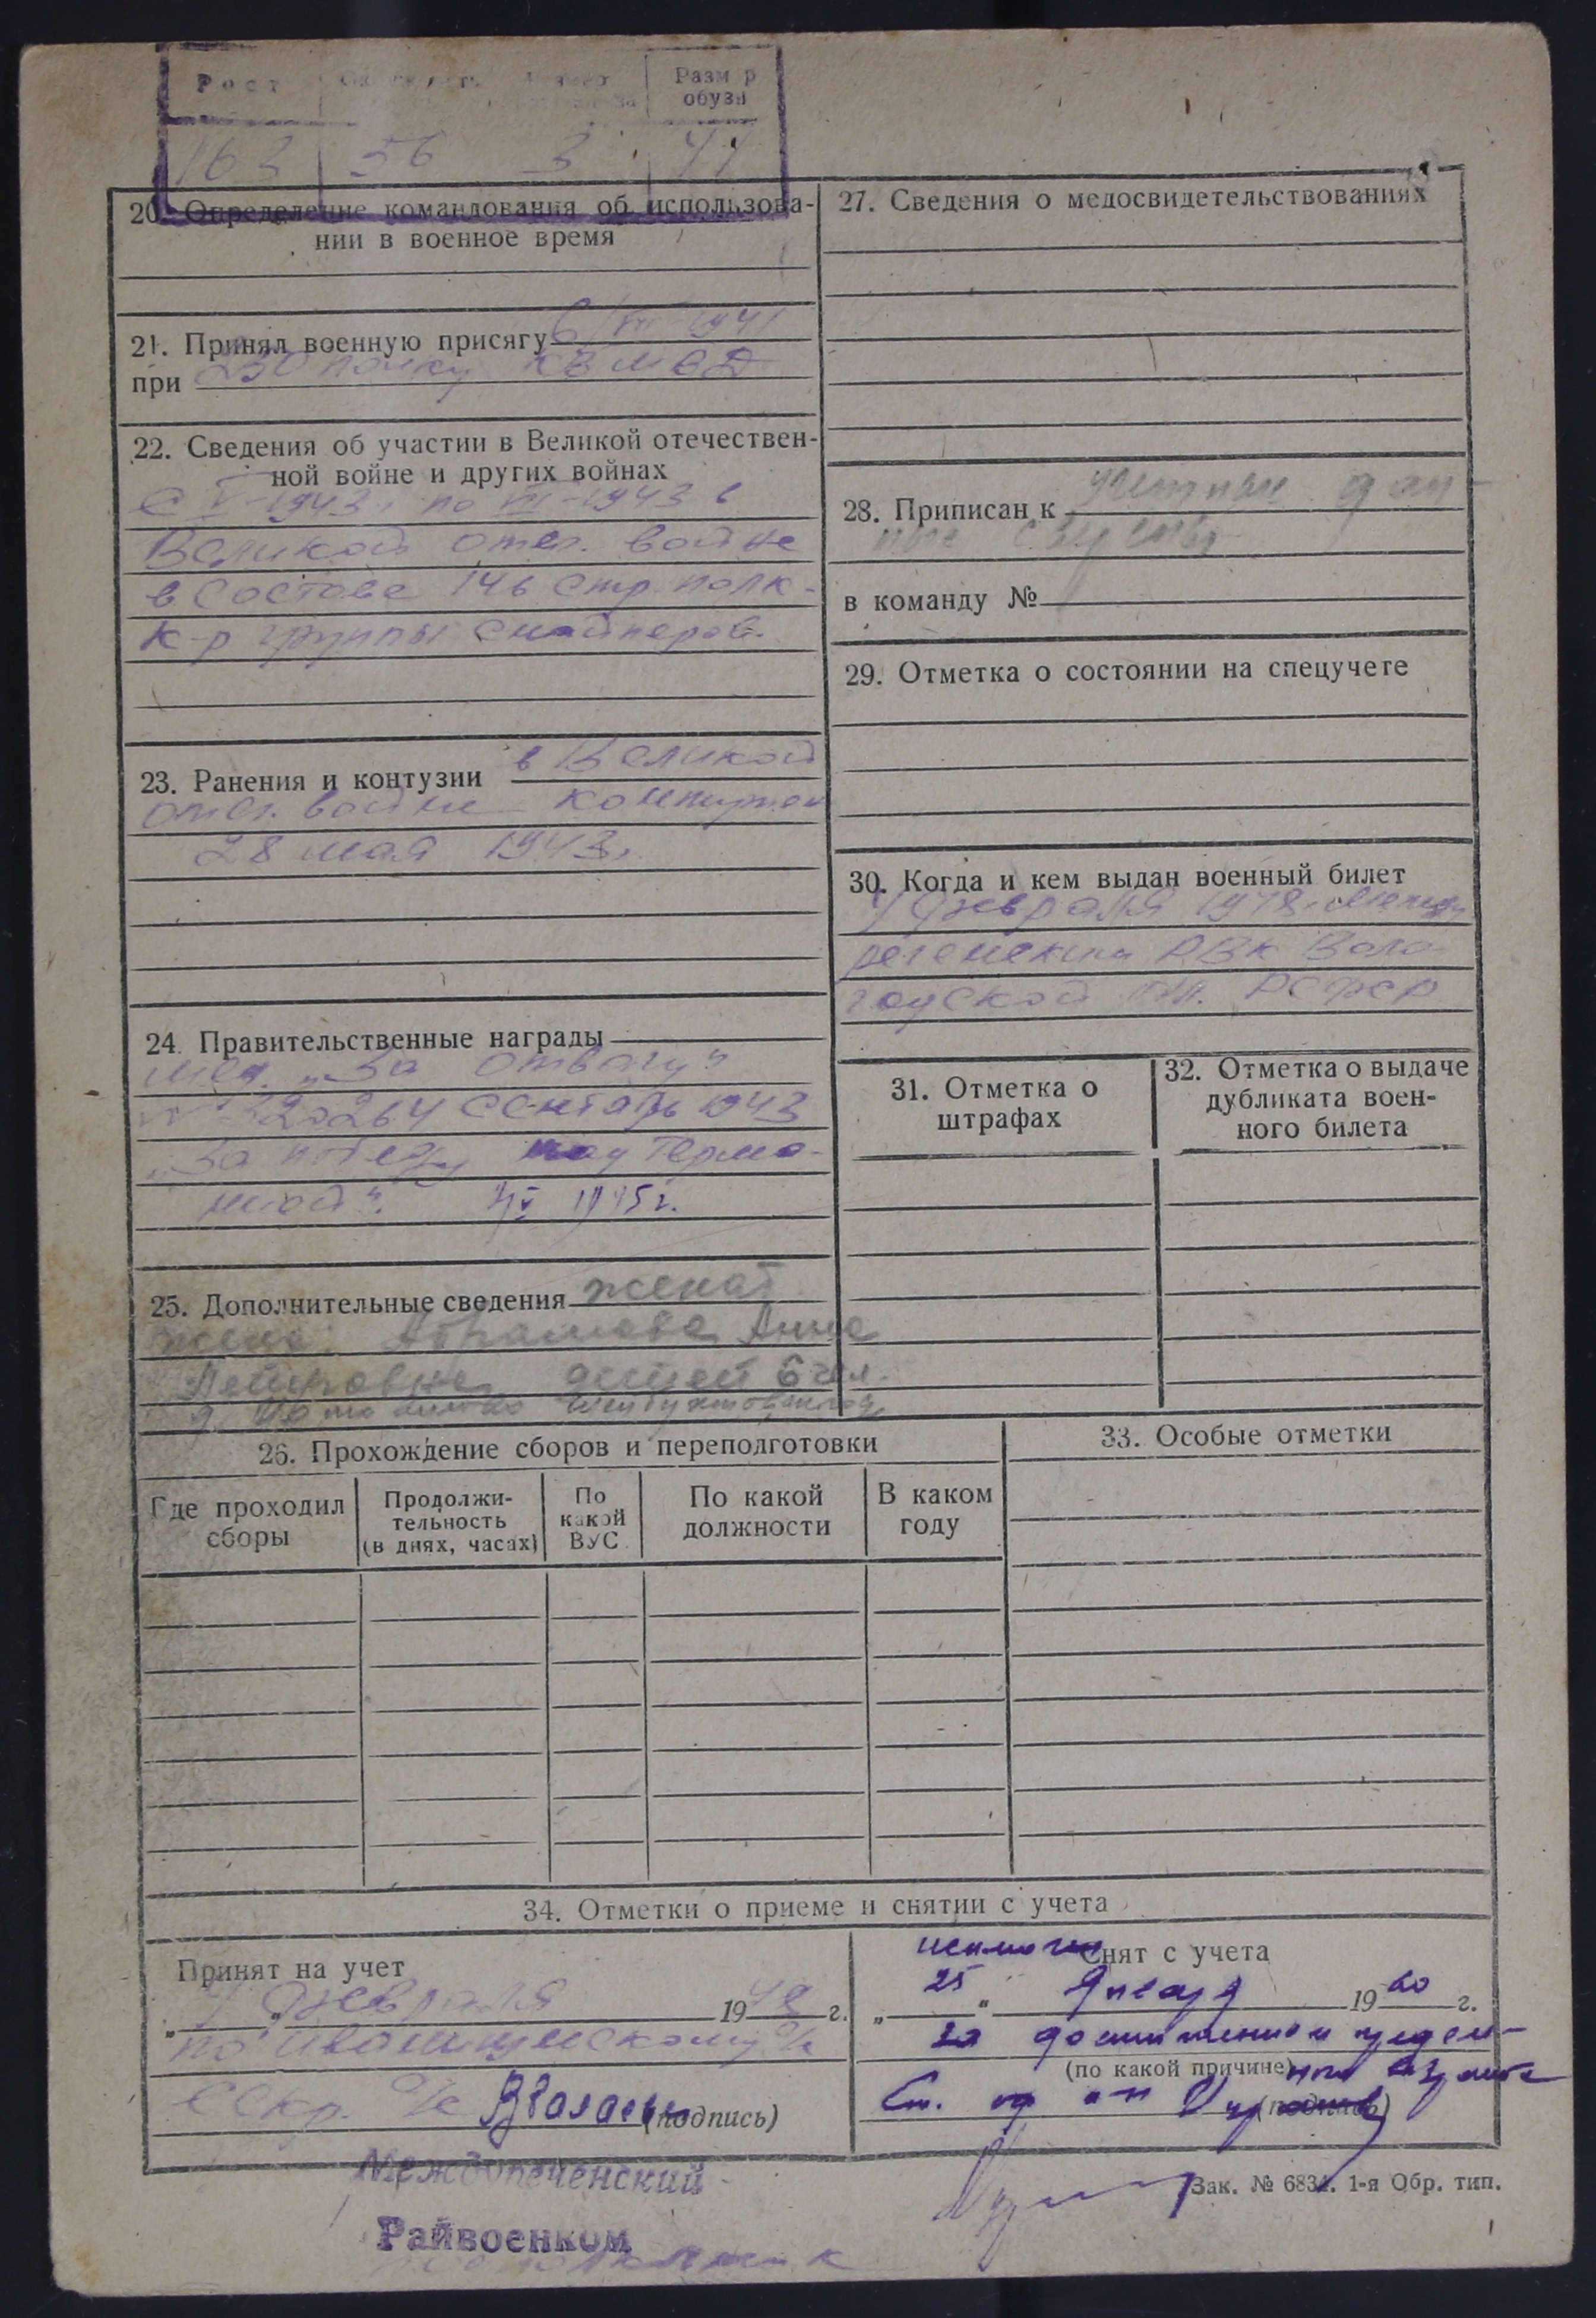 Рост
Разм р
обуви
163 56 3 41
20. Определение командования об использова-
нии в военное время
21. Принял военную присягу 6/VII-1941
при 230 полку КВ МВД
22. Сведения об участии в Великой отечествен-
ной войне и других войнах
С V-1943 по VII-1943 в
Великой отеч. войне
в составе 146 стр. полк-
к-р группы снайперов.
23. Ранения и контузии в Великой
отеч. войне контужен
28 мая 1943г.
24. Правительственные награды
мед. „За отвагу"
сентябрь 1943
„За победу над Герма-
нией". 1945г.
25. Дополнительные сведения женат
жена Абрамова Анна
Петровна детей 6 чел.
26. Прохождение сборов и переподготовки
Где проходил
сборы
Продолжи-
тельность
(в днях, часах)
По
какой
ВУС
По какой
должности
В каком
году
27. Сведения о медосвидетельствованиях
28. Приписан к
в команду №
29. Отметка о состоянии на спецучете
30. Когда и кем выдан военный билет
7 февраля 1948г. Между
реченским РВК Воло-
годской обл. РСФСР
31. Отметка о
штрафах
32. Отметка о выдаче
дубликата воен-
ного билета
33. Особые отметки
34. Отметки о приеме и снятии с учета
Принят на учет
„7" февраля 1948 г.
по
(подпись)
Междуреченский
Райвоенком
Снят с учета
„25" Января 1960 г.
за достижением предель-
(по какой причине) ного возраста
Ст.
(подпись)
Зак. № 6834. 1-я Обр. тип.